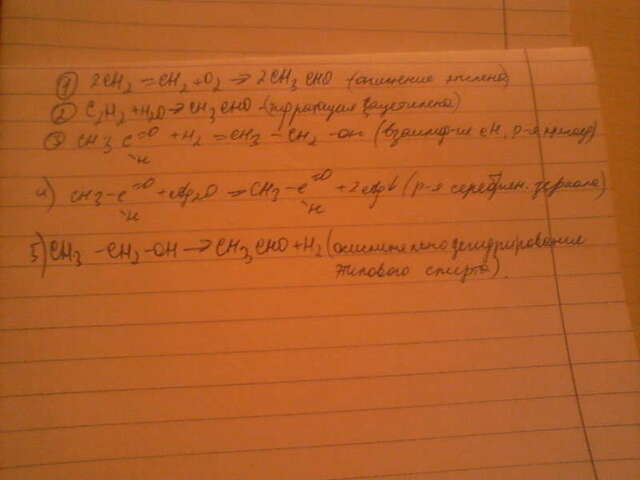 1) 2CH2 = CH2 + O2 → 2CH3 CHO (окисление этилена)
2) C2H2 + H2O → CH3 CHO (гидратация ацетилена)
3) CH3 C =O + H2 = CH3 - CH2 - OH (взаимод-ие с H, р-я
H
4) CH3 - C =O + Ag2O → CH3 - C =O + 2Ag↓ (р-я серебрян. зеркала)
H H
5) CH3 - CH2 - OH → CH3CHO + H2 (окислительно дегидрирование
этилового спирта)